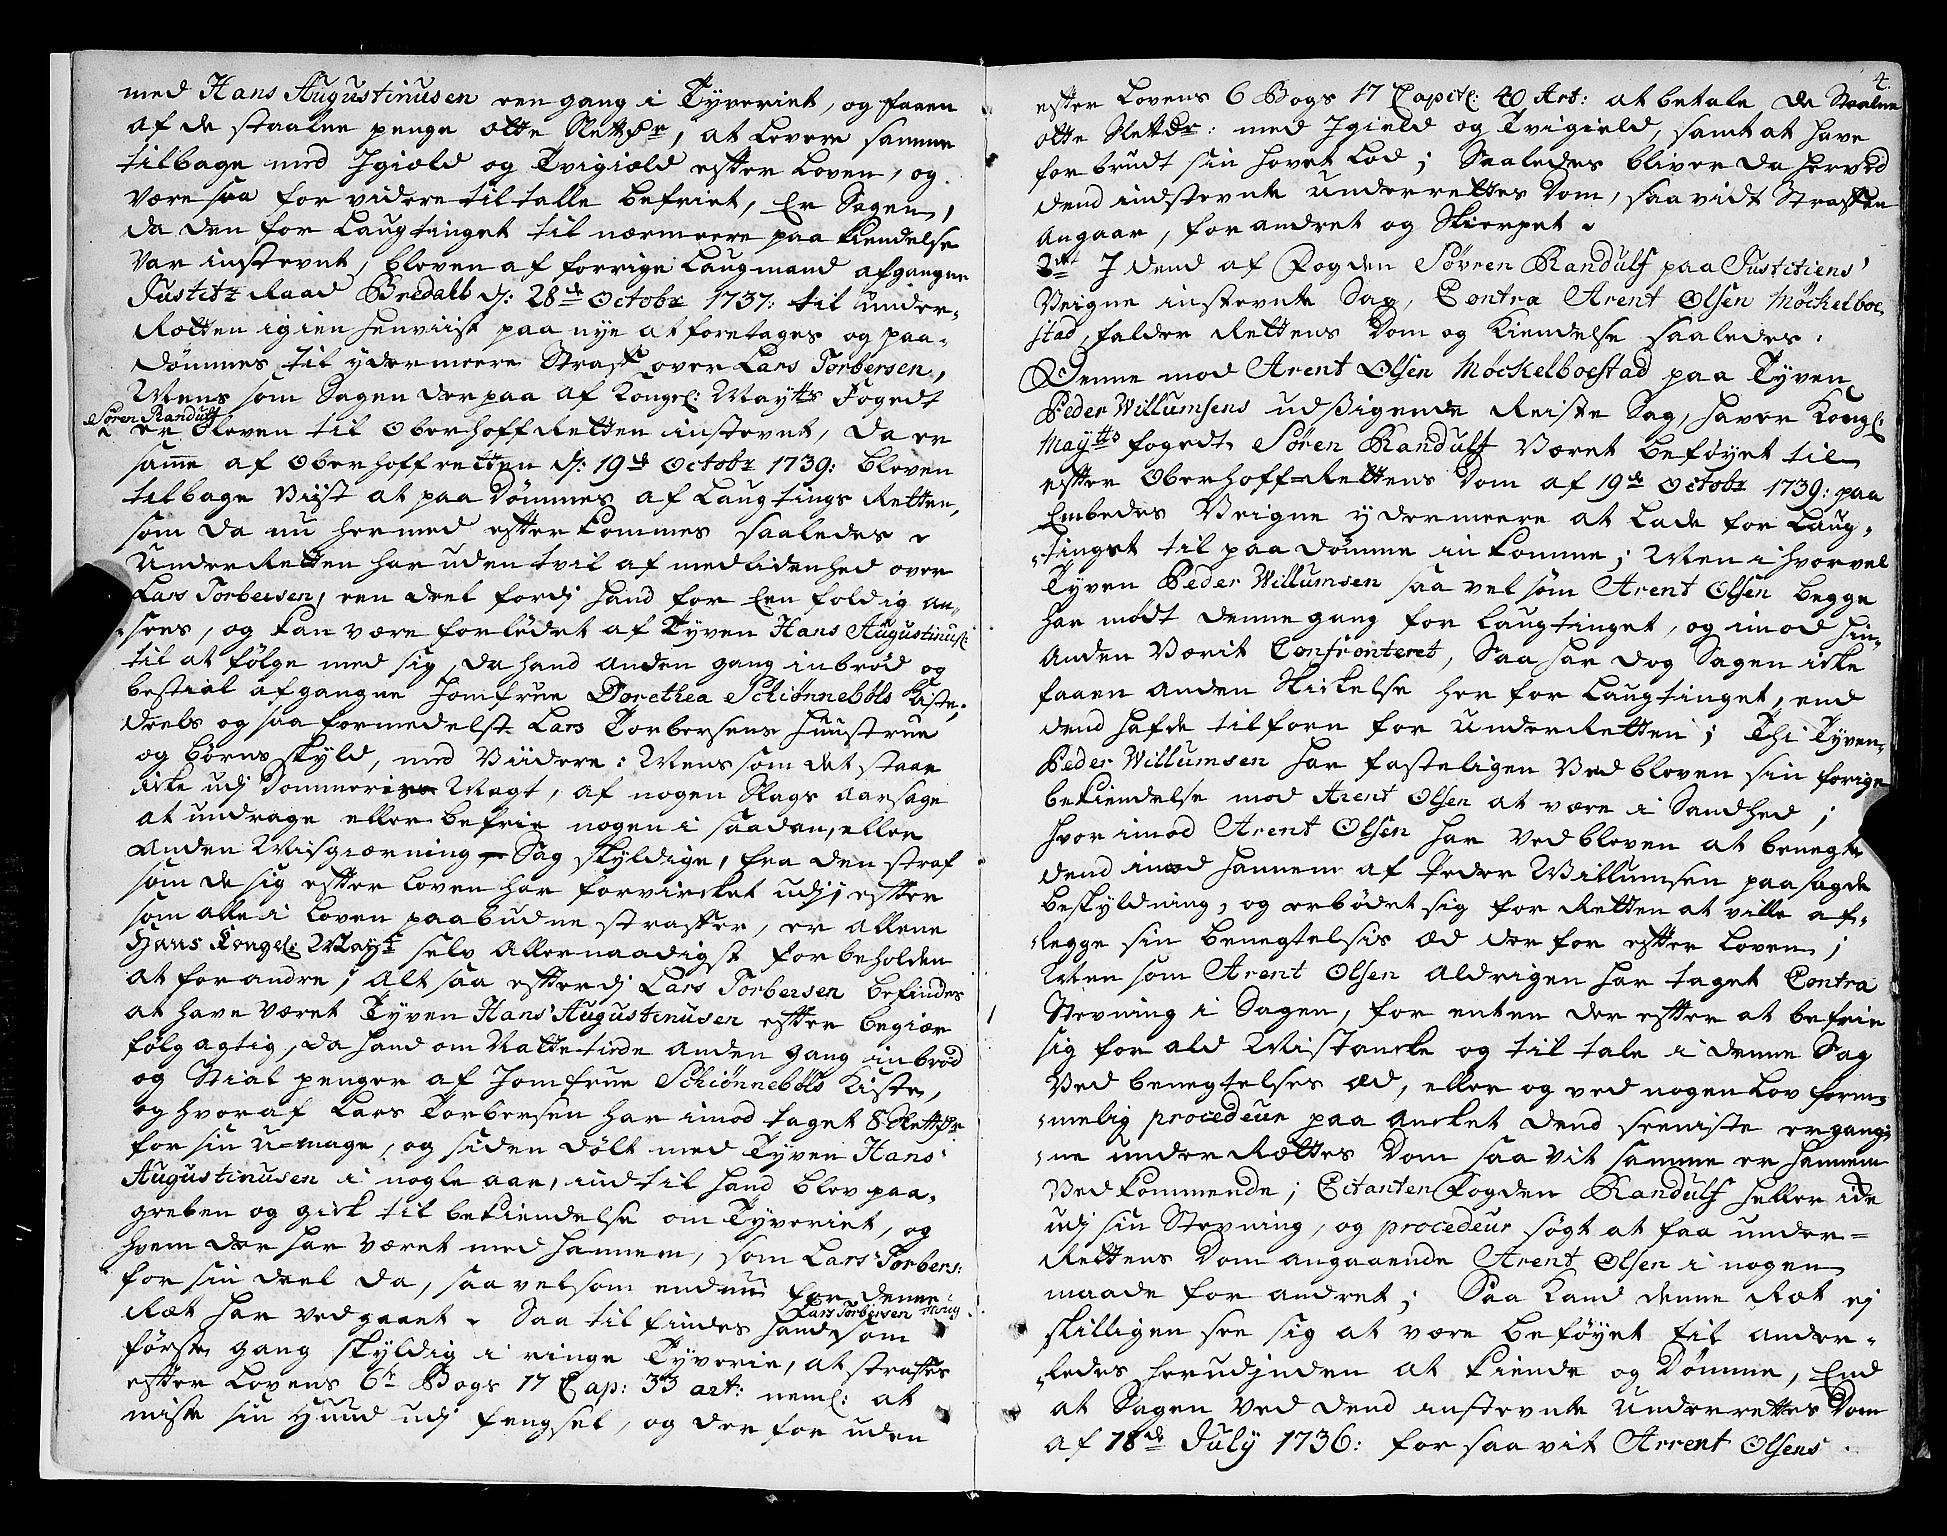 med Hans Augustinusen een gang i Tyveriet, og faaen
af de staalne penge otte Slettdr, at Levere samme
tilbage med Jgiæld og Tvigiæld effter Loven, og
være saa for videre tiltalle befriet, Er Sagen,
da den for Laugtinget til nærmeere paakiendelse
var instevnt, bleven af forrige Laugmand afgangne
Justitz Raad Bredall d: 28de Octobr 1737: til under-
Retten igien henviist paa nye at foretages og paa-
dömmes til ydermeere Straf over Lars Torbersen,
Mens som Sagen derpaa af Kongel: Maytts Fogedt
Sören Randulf
er bleven til Oberhoff Retten instevnt, da er
samme af Oberhoffretten d: 19de Octobr 1739: bleven
tilbage Viist at paa Dömmes af Laugtings Retten,
som da nu hermed effterkommes saaledes
UnderRetten har uden tvil af medlidenhed over
Lars Torbersen, een deel fordj hand for Een foldig an-
sees, og kan være forlödet af Tyven Hans Augustinus:
til at fölge med sig, da hand anden gang inbröd og
bestial afgangne Jomfrue Dorethea Schiönneböls Kiste,
deels og saa formedelst Lars Torbersens Huustrue
og börns skyld, med Viidere: Mens som det staar
icke udj Dommerens Magt, af nogen Slags aarsage
at undrage eller befrie nogen i saadan, eller
anden Misgiærning Sag skyldige, fra den straf
som de sig effter loven har forvircket udj, effter
som alle i Loven paabudne straffer, er allene
Hans Kongel: Maytt selv Allernaadigst forbeholden
at forandre; Alt saa effterdj Lars Torbersen befindes
at have været Tyven Hans Augustinusen effter begiær
fölgagtig, da hand om Nattetiide anden gang inbröd
og Stial penger af Jomfrue Schiönneböls Kiste,
og hvoraf Lars Torbersen har imod taget 8 Slettdr
for sin U-mage, og siden dölt med Tyven Hans
Augustinusen i nogle aar, indtil hand blev paa-
greben og gick til bekiendelse om Tyveriet, og
hvem der har været med hannem, som Lars Torbers:
for sin deel da, saa velsom endnu for denne
Ræt har vedgaaet. Saa tilfindes hand Lars Torbersen som
förste gang skyldig i ringe Tyverie, at straffes
effter Lovens 6te Bogs 17 Cap: 33 art: neml: at
miste sin Huud udj fengsel, og der for uden
4.
effter Lovens 6 Bogs 17 Capitl: 40 Art: at betale de Staalne
otte Slettdr: med Jgield og Tvigield, samt at have
forbrudt sin hovet Lod; Saaledes bliver da herved
dend indstevnte Underrettes Dom, saavidt Straffen
Angaar, forandret og Skierpet.
2det J dend af Fogden Sövren Randulf paa Justitiens
Veigne instevnte Sag, Contra Arent Olsen Möckelboe-
stad, falder Rettens Dom og Kiendelse saaledes:
Denne mod Arent Olsen Möckelboestad paa Tyven
Peder Willumsens udsigende Reiste Sag, haver Kongl:
Maytts fogedt Sören Randulf været beföyet til
effter Oberhoff-Rettens Dom af 19de Octobr 1739: paa
Embedes Veigne ydermeere at lade for Laug-
tinget til paadömme inkomme; Men i hvorvel
Tyven Peder Willumsen saa vel som Arent Olsen begge
har mödt denne gang for Laugtinget, og imod hin-
anden Værit Confronteret, Saa har dog Sagen icke
faaen anden Skickelse her for Laugtinget, end
dend hafde tilforn for UnderRetten; Thi Tyven
Peder Willumsen har fasteligen Vedbleven sin forige
bekiendelse mod Arent Olsen at være i Sandhed;
hvorimod Arent Olsen har Vedbleven at benegte
dend imod hannem af Peder Willumsen paasagde
beskyldning, og erbödet sig for Retten at ville af-
legge sin benegtelsis Æd derfor effter Loven;
Men som Arent Olsen aldrigen har taget Contra
Stevning i Sagen, for enten der effter at befrie
sig for ald Mistancke og tiltale i denne Sag
ved benegtelses Æd, eller og ved nogen Lov form-
melig procedeur paa ancket dend seeniste ergang-
ne underRettes Dom saavit samme er hannem
vedkommende; Citanten Fogden Randulf heller icke
udj sin Stevning, og procedeur sögt at faa under-
Rettens Dom angaaende Arent Olsen i nogen
maade forandret; Saa Kand denne Ræt ej
skilligen see sig at være beföyet til ander-
ledes herudjnden at kiende og Dömme, End
at Sagen ved dend instevnte Underrettes Dom
af 18de July 1736: forsaavit Arrent Olsens